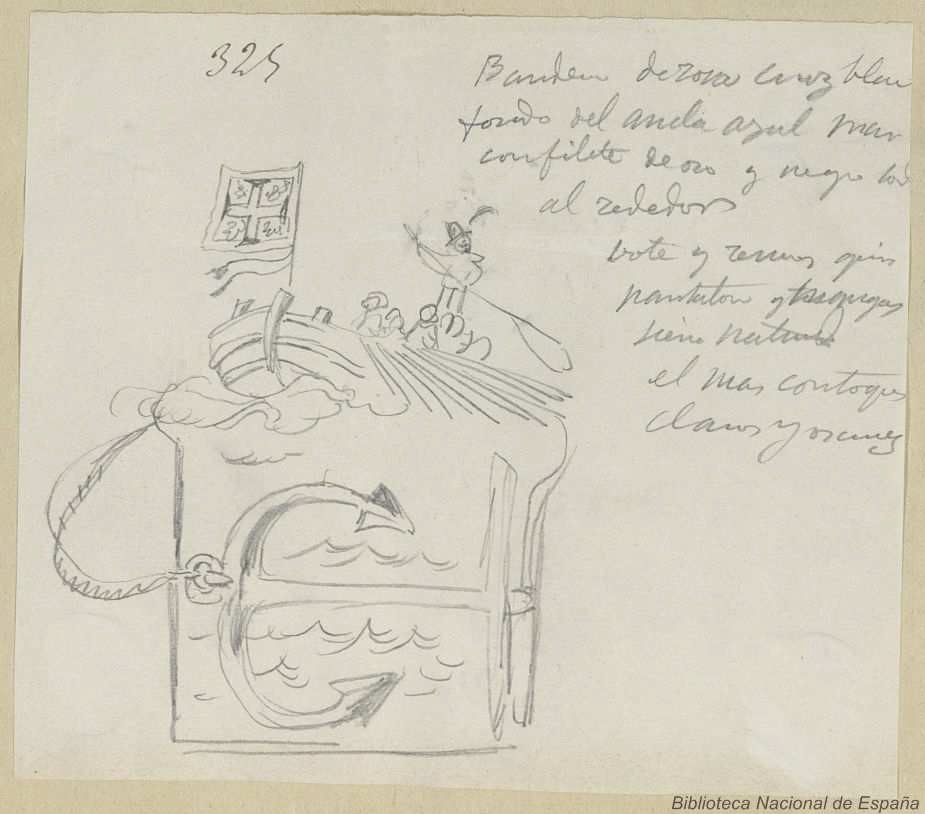 325
Bandera de roxo cruz blan
fondo del ancla azul mar
con filete de oro y negro tod
al rededor
bote y remos gris
pantalon y mangas
siena natural
el mar con toques
claros y oscuros
Biblioteca Nacional de España